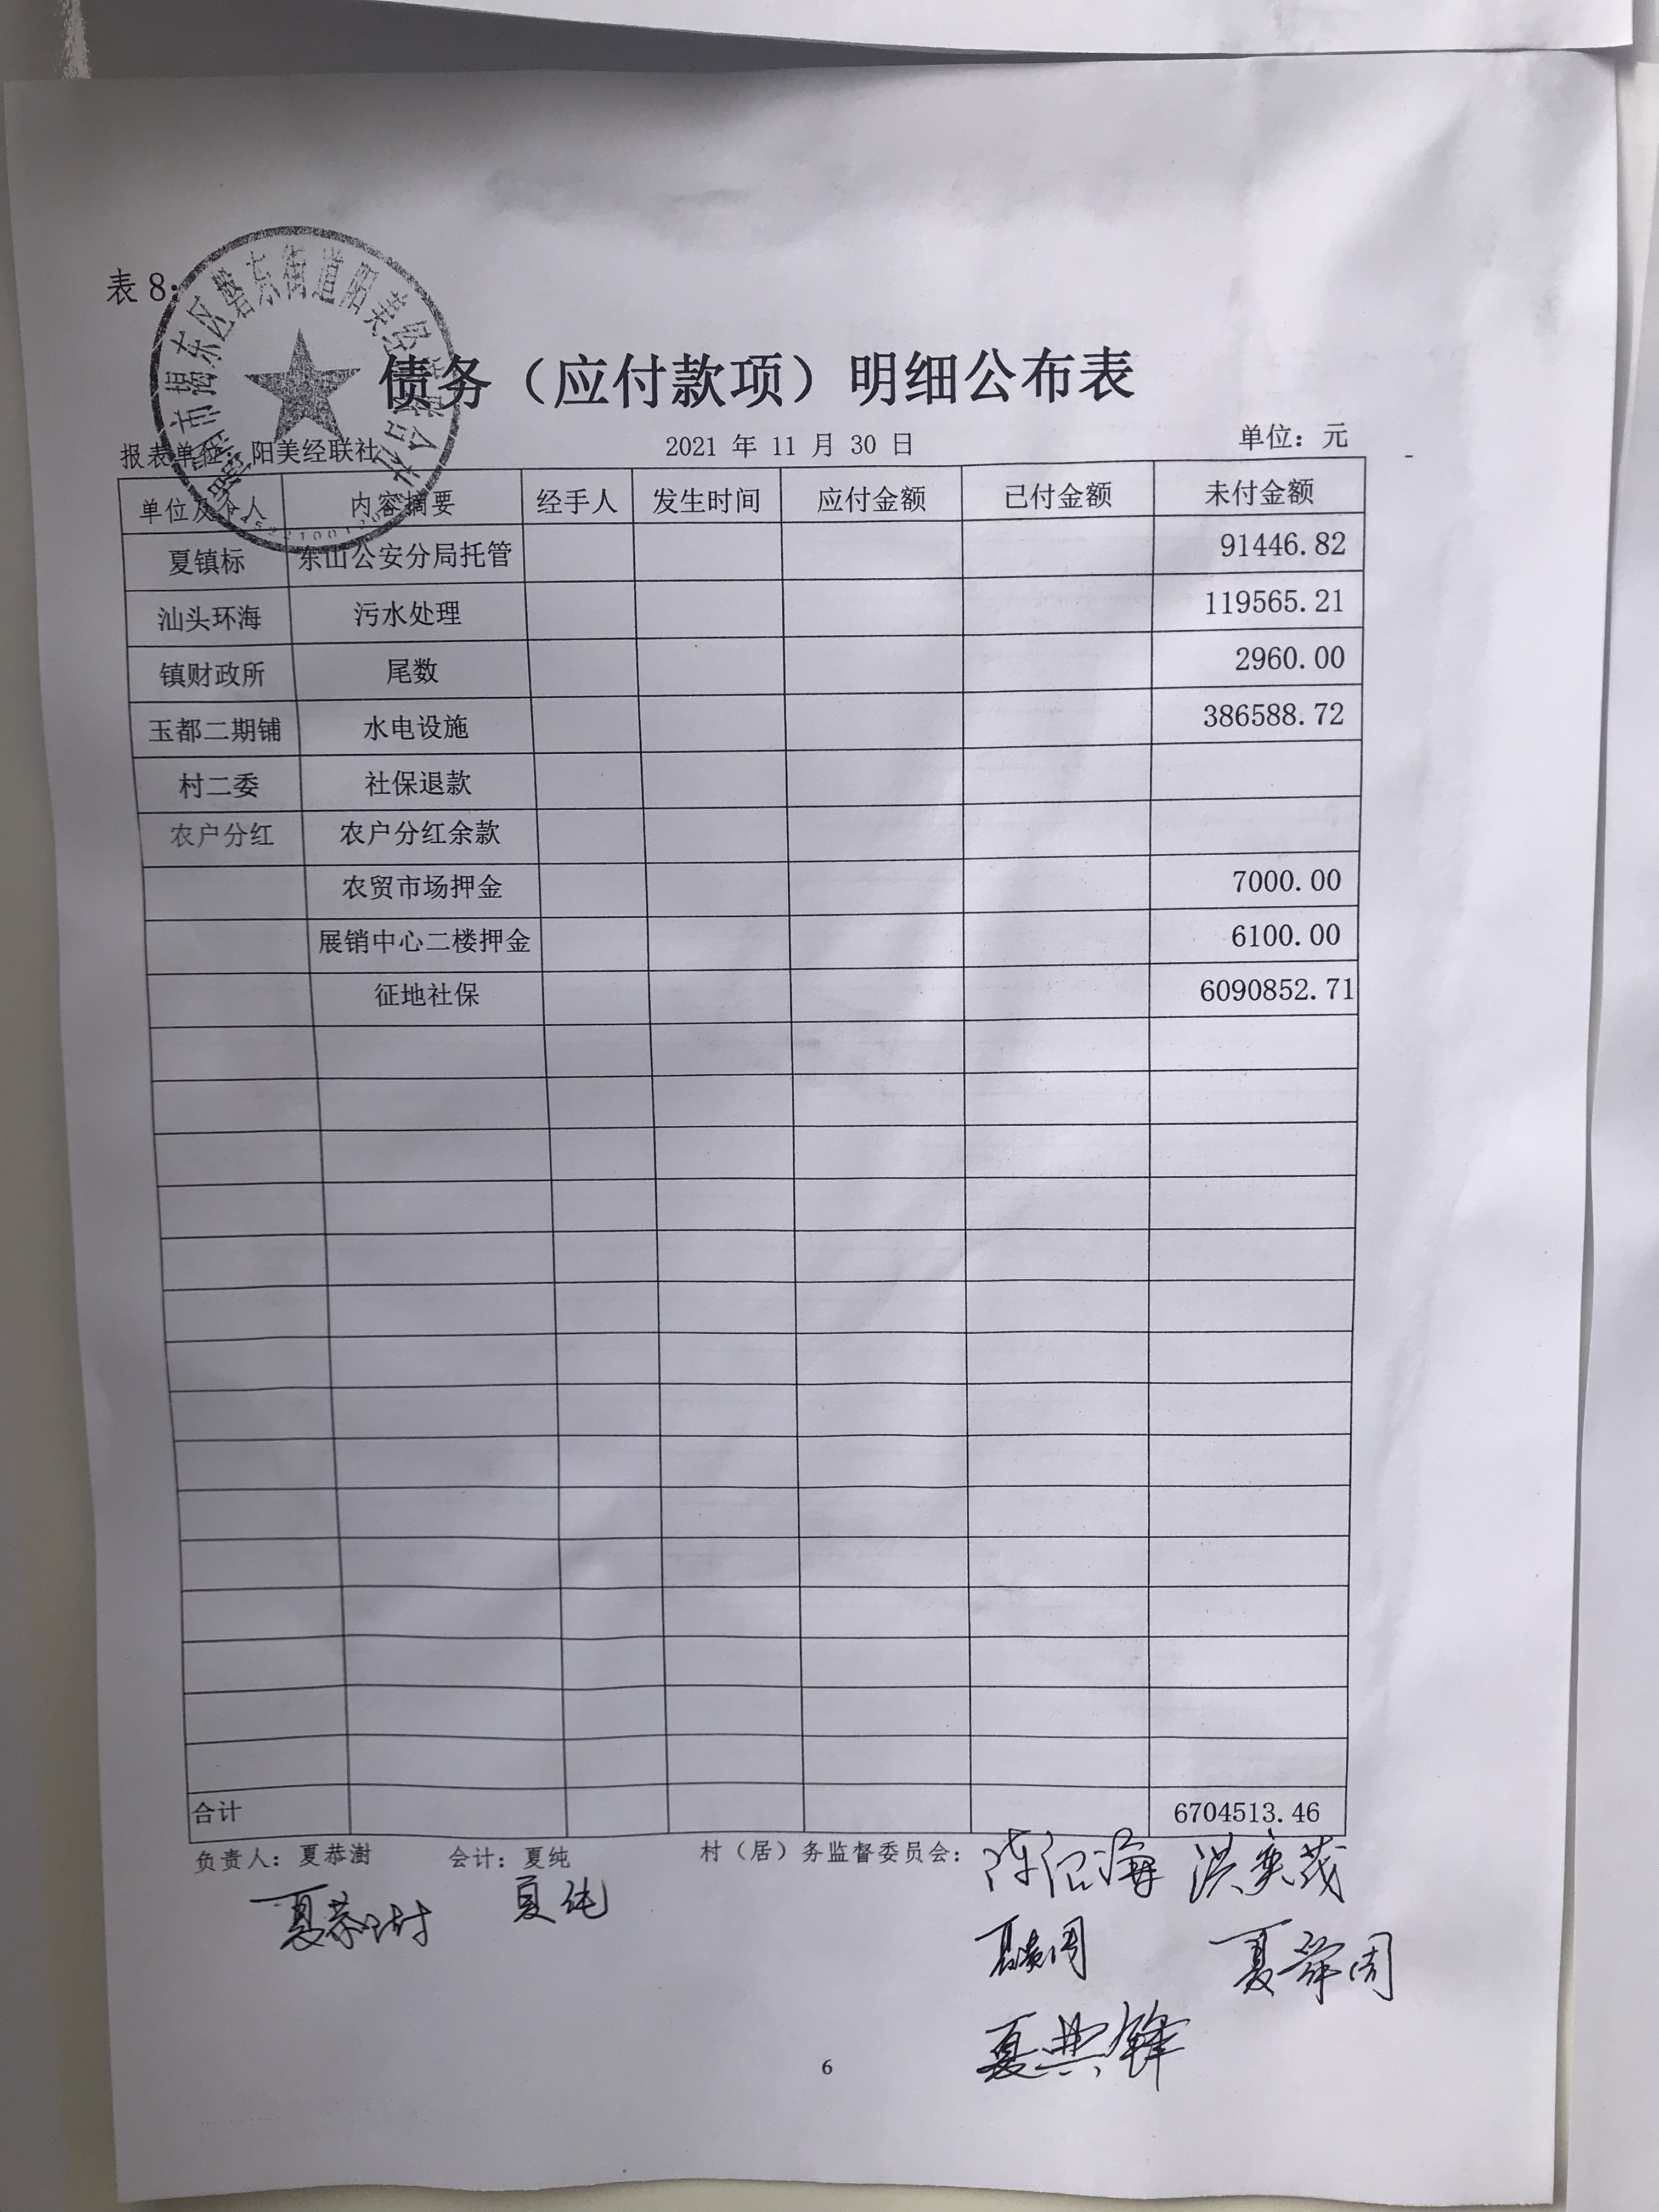 表 8：
债务（应付款项）明细公布表
报表单位：阳美经联社 2021 年 11 月 30 日 单位：元
单位及个人 内容摘要 经手人 发生时间 应付金额 已付金额 未付金额
夏镇标 东山公安分局托管 91446.82
汕头环海 污水处理 119565.21
镇财政所 尾数 2960.00
玉都二期铺 水电设施 386588.72
村二委 社保退款
农户分红 农户分红余款
农贸市场押金 7000.00
展销中心二楼押金 6100.00
征地社保 6090852.71
合计 6704513.46
负责人：夏恭澍 会计：夏纯 村（居）务监督委员会：
夏恭澍 夏纯
夏舜周
夏典锋
6
市揭东区磐东街道阳美经